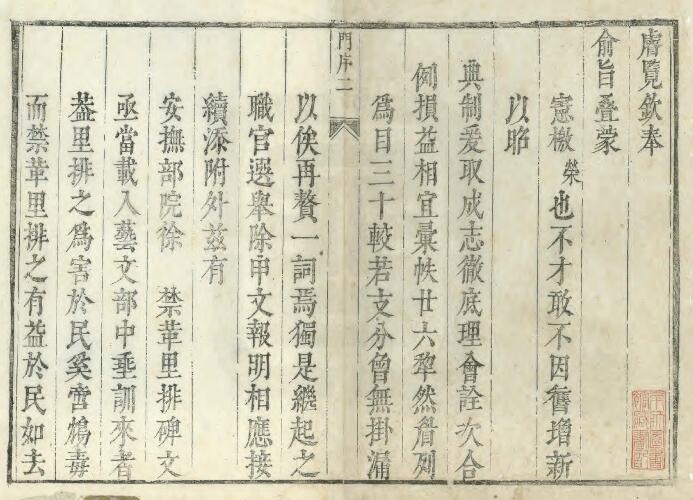 膚覽欽奉
俞旨叠蒙
憲檄榮也不才敢不因舊增新
以昭
典制爰取成志徹底理會詮次合
例損益相宜彙帙廿六犂然眷列
爲目三十較若支分曾無掛漏
門序二
以俟再贅一詞焉獨是繼起之
職官選舉除申文報明相應接
續添附外兹有
安撫部院徐 禁革里排碑文
亟當載入藝文部中垂訓來者
葢里排之爲害於民奚啻鴆毒
而禁革里排之有益於民如去